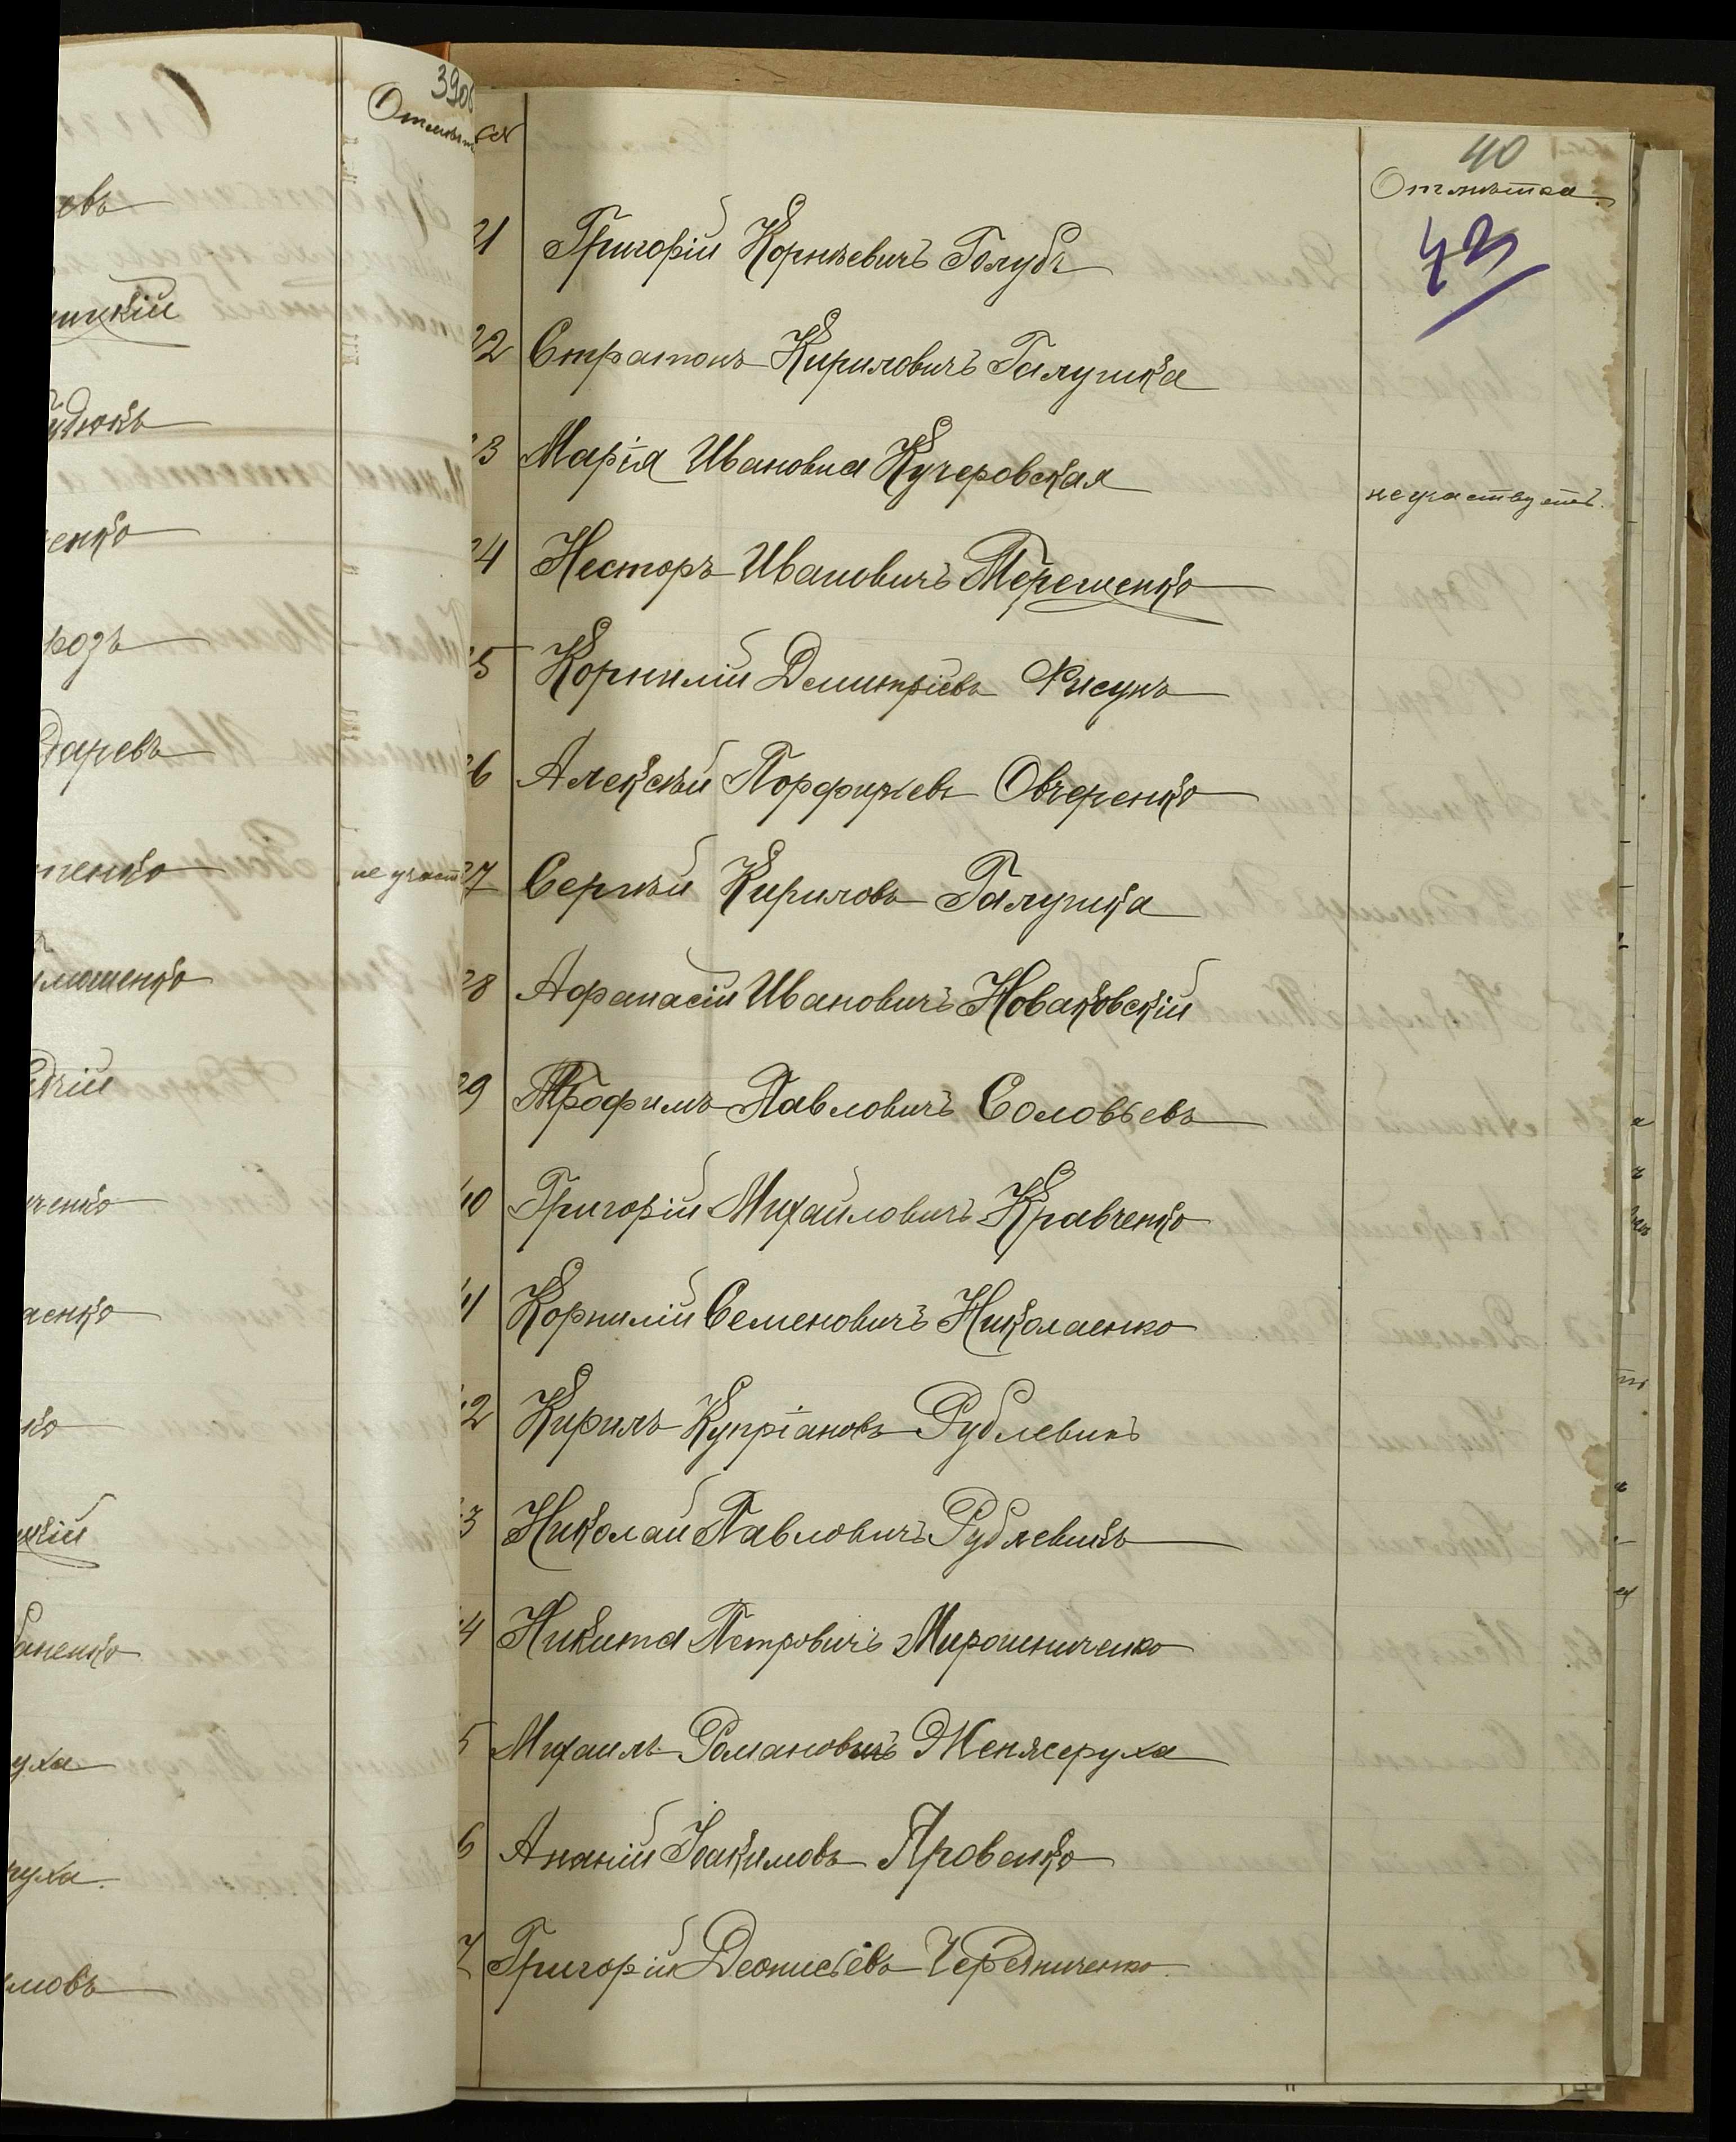 евъ
енко
розъ
даревъ
уха
руха
мовъ
не участ
40
Отмѣтка.
43
31 Григорій Корнѣевичъ Голубъ
32 Стратонъ Кириловичъ Галушка
33 Марія Ивановна Кучеровская не участвуетъ.
34 Несторъ Ивановичъ Терещенко
35 Корнилій Димитріевъ Рисунъ
36 Алексѣй Порфирьевъ Овчеренко
37 Сергѣй Кириловъ Галушка
38 Афанасій Ивановичъ Новаковскій
39 Трофимъ Павловичъ Соловьевъ
40 Григорій Михайловичъ Кравченко
41 Корнилій Семеновичъ Николаенко
42 Кирилъ Купріановъ Рублевикъ
43 Николай Павловичъ Рублевикъ
44 Никита Петровичъ Мирошниченко
5 Михаилъ Романовичъ Женжеруха
6 Ананій Іоакимовъ Яровенко
7 Григорій Деонисьевъ Чередниченко.